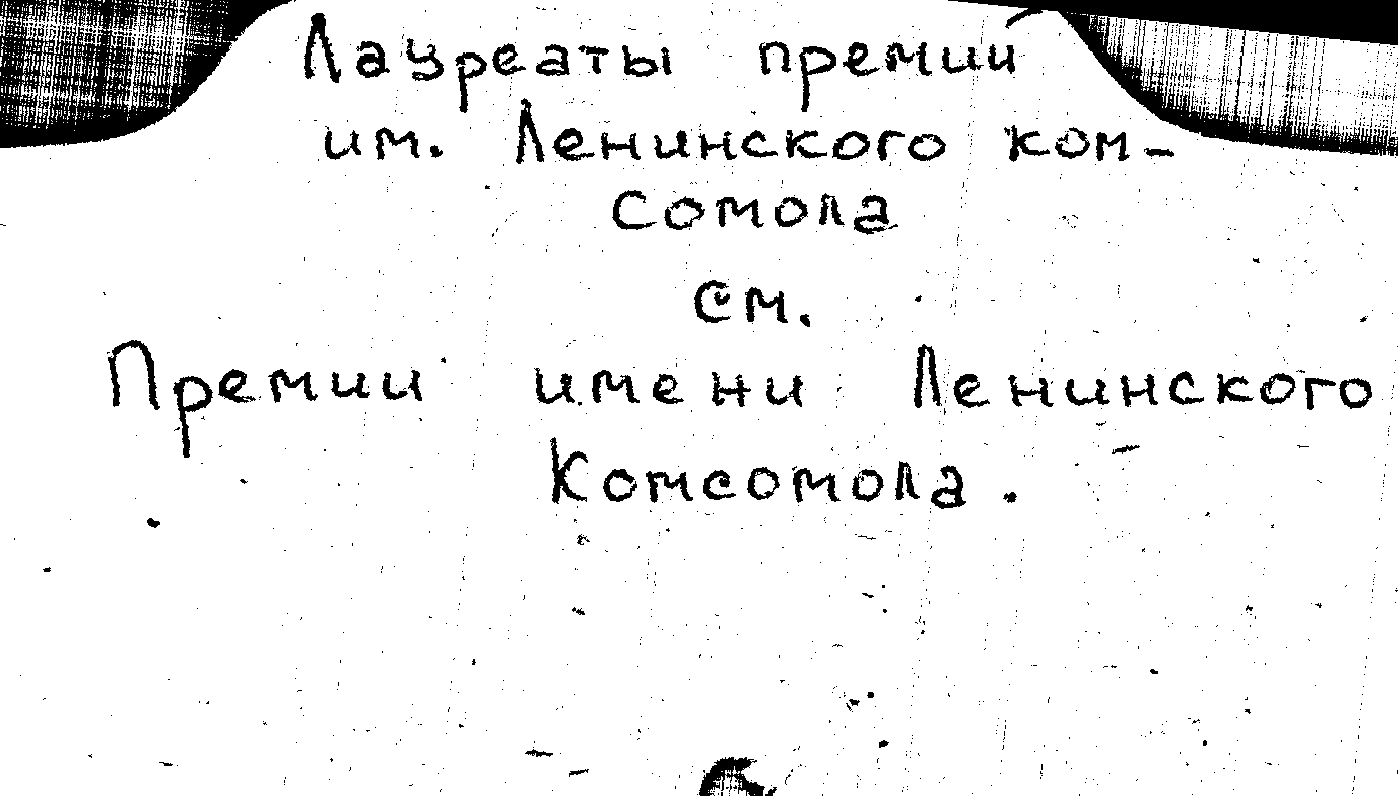 Лауреаты премий
им. Ленинского ком-
сомола
см.
Премии имени Ленинского
Комсомола.